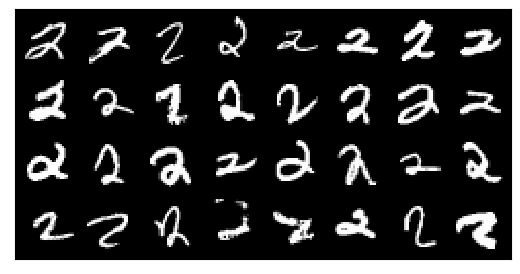 2 2 2 2 2 2 2 2
2 2 2 2 2 2 2 2
2 2 2 2 2 2 2 2
2 2 2 2 2 2